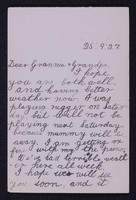 25.9.27.
Dear Grannie & Grandpa,
I hope
you are both well
and having better
weather now. I was
playing rugger on Satur
day but will not be
playing next Saturday
because mummy will be
away. I am getting on
We've had terrible weath
er here all week
I hope we will see
you soon, and it